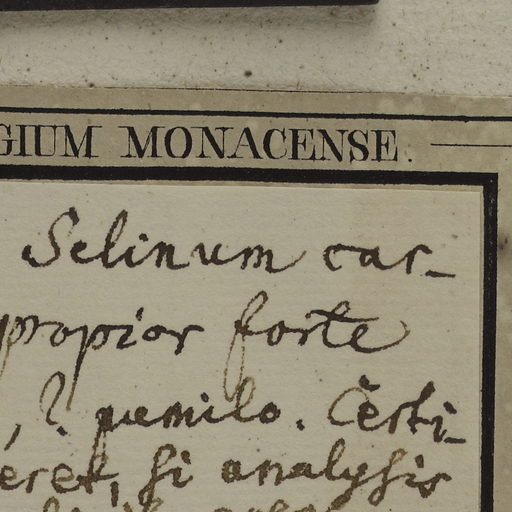 GIUM MONACENSE.
Selinum car-
propior forte
, ?. pumilo. Certi-
eret, si analysis